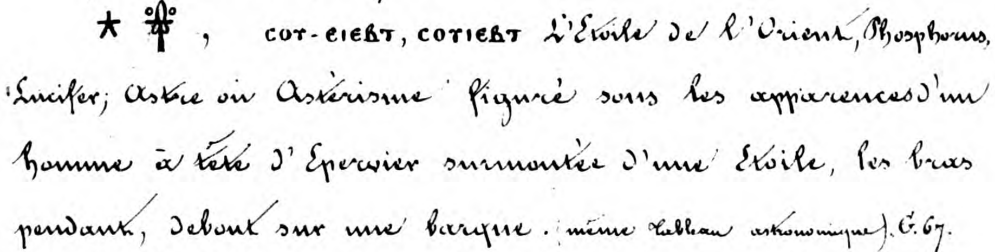 , ⲥⲟⲩ-ⲉⲓⲉⲃⲧ, ⲥⲟⲩⲓⲉⲃⲧ L'Etoile de l'Orient, Phosphorus,
Lucifer; Astre ou Astérisme figuré sous les apparences d'un
homme à tête d'Epervier surmontée d'une Etoile, les bras
pendant, debout sur une barque. (même tableau astronomique). G. 67.